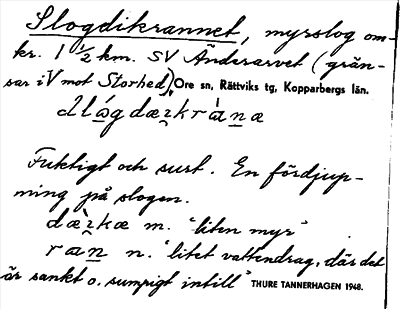 Slogdikrannet, myrslog om-
kr. 1 ½ km. SV Ändersarvet (grän-
sar i V mot Storhed), Ore sn, Rättviks tg, Kopparbergs län.
Fuktigt och surt. En fördjup-
ning på slogen.
m. "liten myr"
n. "litet vattendrag, där det
är sankt o. sumpigt intill" THURE TANNERHAGEN 1948.